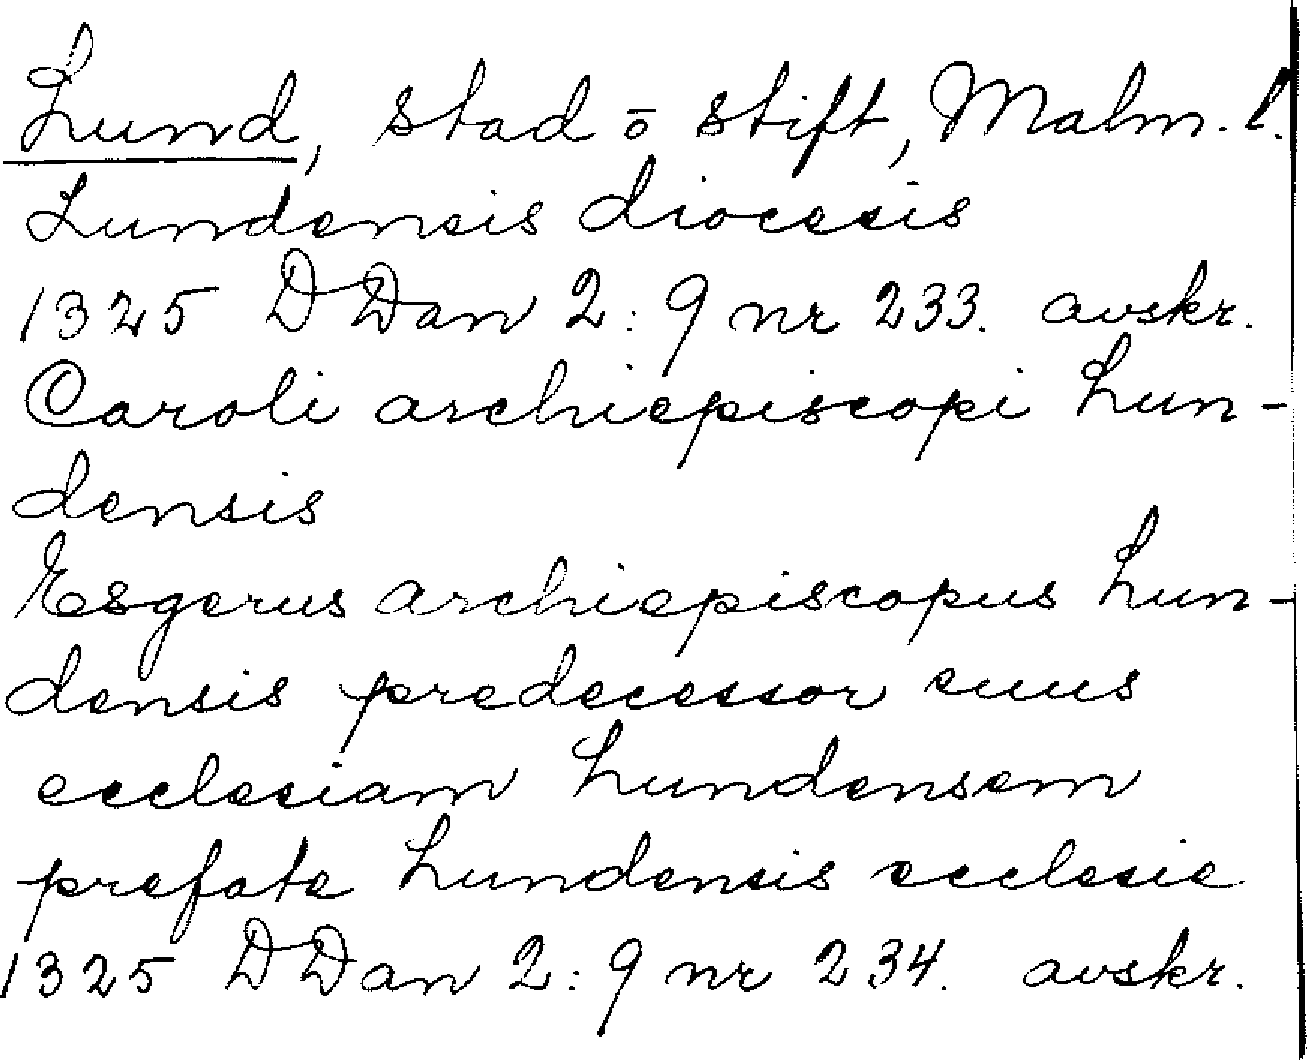 Lund, stad ō stift, Malm. l.
Lundensis diocesis
1325 DDan 2:9 nr 233. avskr.
Caroli archiepiscopi Lun-
densis
Esgerus archiepiscopus Lun-
densis predecessor suus
ecclesiam Lundensem
prefate Lundensis ecclesie
1325 DDan 2:9 nr 234. avskr.